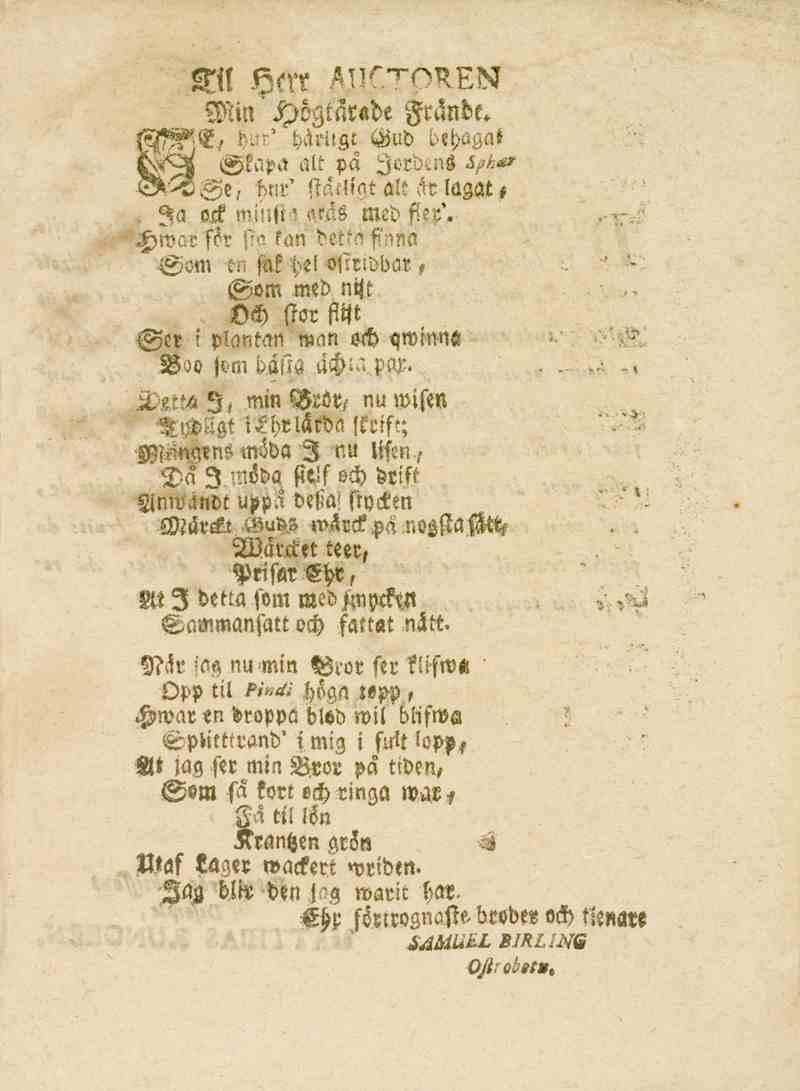 Til Herr AUCTOREN
Min Högtärade Frände.
SE, hur' härligt Gud behagat
Skapa alt på Jordens Sphær
Se, hur' ståeligt alt är lagat,
Ja ock minsta gräs med fler'.
Hwar för sig kan detta finna
Som en sak hel ostridbar,
Som med nijt
Och stor flijt
Ser i plantan man och qwinna
Boo som bästa ächta par.
Detta J, min Bror, nu wisen
Tydligt i Ehr lärda skrift;
Mångens möda J nu lisen,
Då J möda sielf och drift
Anwändt uppå dessa stycken
Märckt Guds wärck på nogsta sätt,
Wärcket teer,
Prisar Ehr,
At J detta som med smycken
Sammanfatt och fattat nätt.
När jag nu min Bror ser klifwa
Opp til Pindi höga topp,
Hwar en droppa blod wil blifwa
Splitttrand' i mig i fult lopp,
At jag ser min Bror på tiden,
Som så kort och ringa war,
Få til lön
Krantzen grön
Utaf Lager wackert wriden.
Jag blir den jag warit har.
Ehr förtrognaste broder och tienare
SAMUEL BIRLING
Ostrobotn.